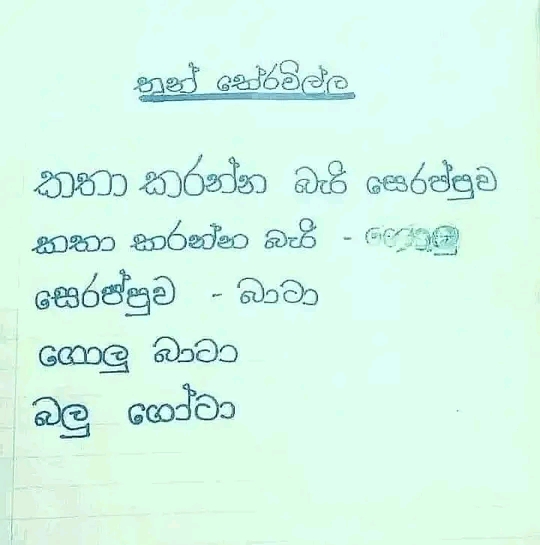 තුන් තේරවිල්ල
කතා කරන්න බැරි සෙරප්පුව
කතා කරන්න බැරි - ගොලු
සෙරප්පුව - බාටා
ගොලු බාටා
බලු ගෝටා